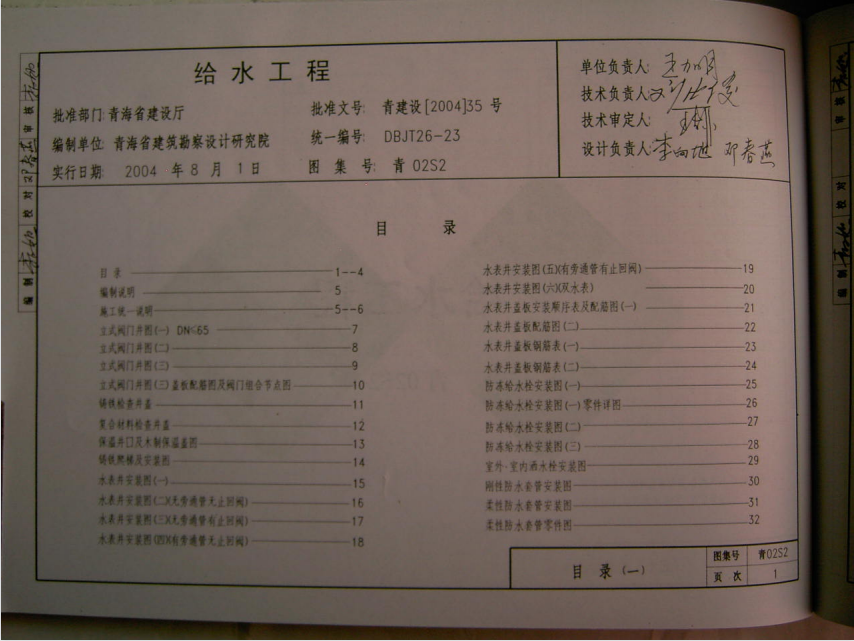 给水工程
批准部门:青海省建设厅
批准文号: 青建设[2004]35 号
编制单位: 青海省建筑勘察设计研究院
统一编号: DBJT26-23
实行日期: 2004 年 8 月 1 日
图 集 号: 青 02S2
单位负责人:
技术负责人:
技术审定人:
设计负责人: 邓春燕
目 录
目 录 1-4
编制说明 5
施工统一说明 5-6
立式阀门井图(一) DN≤65 7
立式阀门井图(二) 8
立式阀门井图(三) 9
立式阀门井图(三)盖板配筋图及阀门组合节点图 10
铸铁检查井盖 11
复合材料检查井盖 12
保温井口及木制保温盖图 13
铸铁爬梯及安装图 14
水表井安装图(一) 15
水表井安装图(二)(无旁通管无止回阀) 16
水表井安装图(三)(无旁通管有止回阀) 17
水表井安装图(四)(有旁通管无止回阀) 18
水表井安装图(五)(有旁通管有止回阀) 19
水表井安装图(六)(双水表) 20
水表井盖板安装顺序表及配筋图(一) 21
水表井盖板配筋图(二) 22
水表井盖板钢筋表(一) 23
水表井盖板钢筋表(二) 24
防冻给水栓安装图(一) 25
防冻给水栓安装图(一)零件详图 26
防冻给水栓安装图(二) 27
防冻给水栓安装图(三) 28
室外·室内洒水栓安装图 29
刚性防水套管安装图 30
柔性防水套管安装图 31
柔性防水套管零件图 32
目 录 (一)
图集号 青02S2
页 次 1
审 核
校 对 邓春燕
编 制